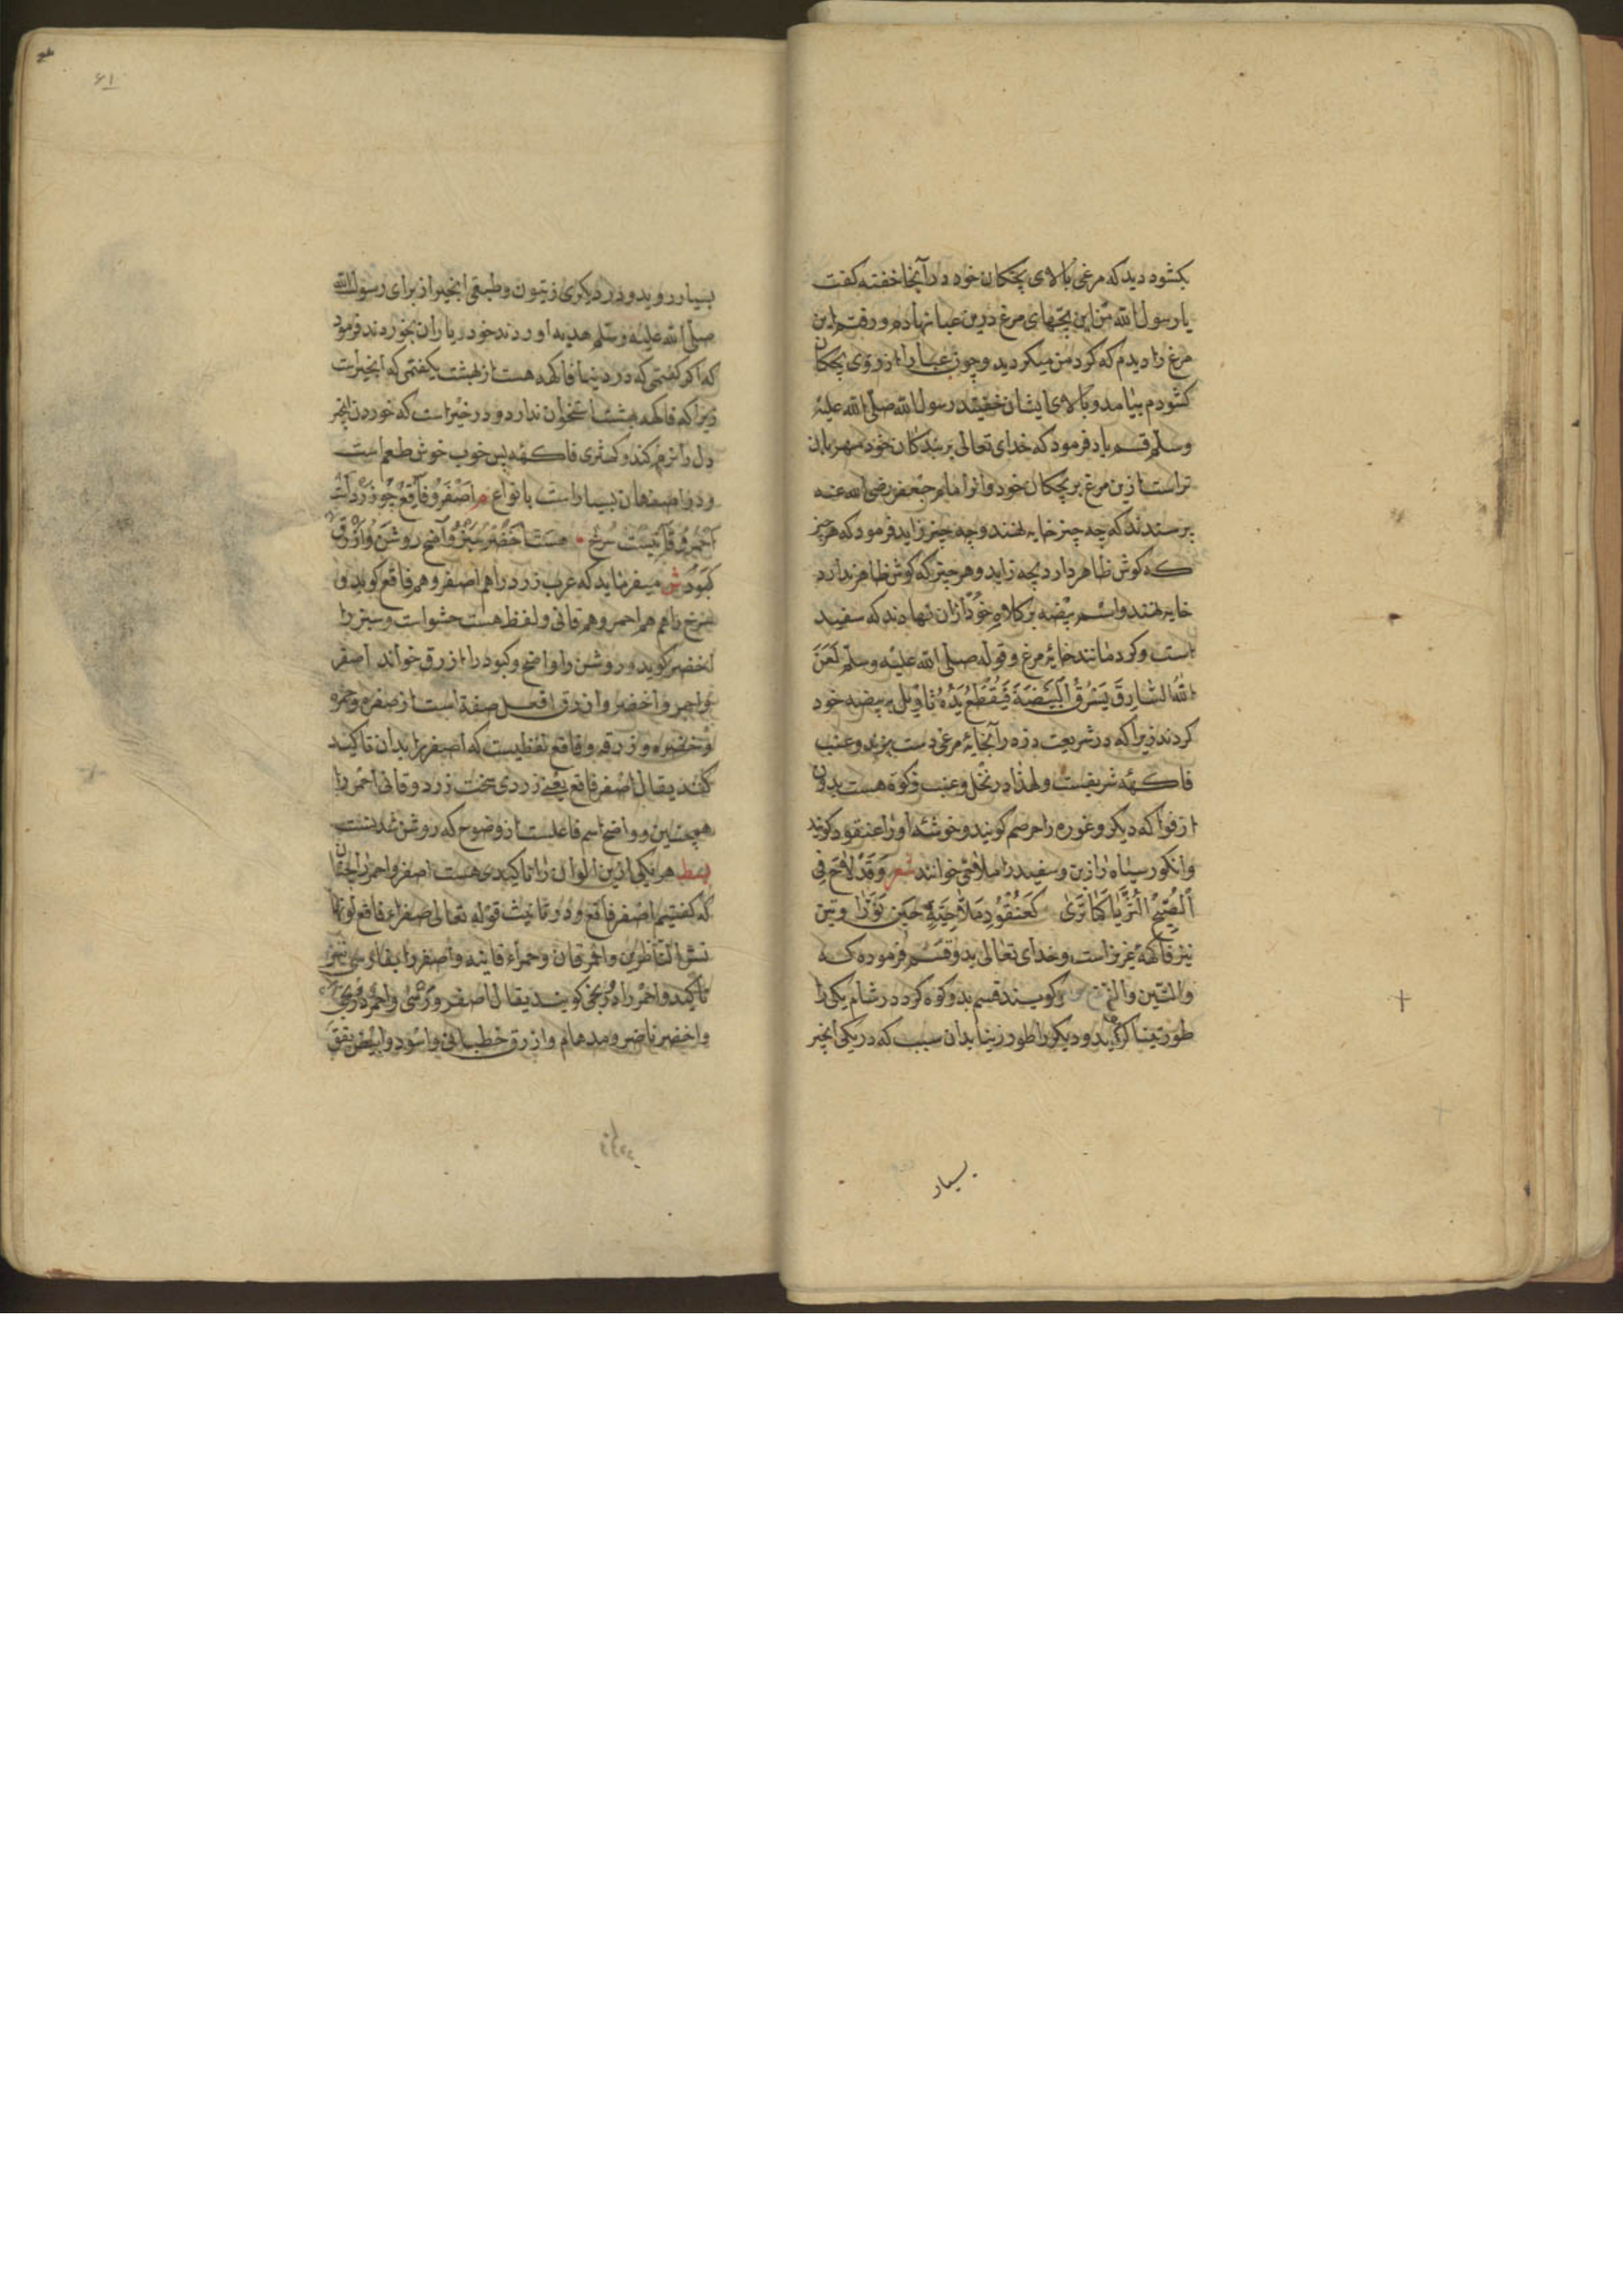 بکشود دید که مرغی بالای بچکان خود در آنجا خفته کفت
یا رسول الله من این بچهای مرغ درین عبا نهادم و رفتم این
مرغ را دیدم که کرد من میکردید و چون عبا را از روی بچکان
کشودم بیامد و بالای ایشان خفتید رسول الله صلی الله علیه
وسلم قسم یاد فرمود که خدای تعالی بر بندکان خود مهربان
تراست ازین مرغ بر بچکان خود و از امام جعفر رضی الله عنه
پرسیدند که چه چیز خایه نهند و چه چیز زاید فرمود که هر چیز
که کوش ظاهر دارد بچه زاید و هر چیز که کوش ظاهر ندارد
خایه نهند و اسم بیضه بر کلاه خود ازان نهادند که سفید
است و کرد مانند خایۀ مرغ و قوله صلی الله علیه وسلم لعن
الله السارق یسرق البیضة فیقطع یده تاویل به بیضه خود
کردند زیرا که در شریعت دزد را بخایۀ مرغی دست نبرند و عنب
فاکهۀ شریفست ولهذا در نخل و عنب زکوة هست بدون
از فواکه دیکر و غوره را حصرم کویند و خوشۀ او را عنقود کویند
وانکور سیاه رازبن و سفید را ملاحی خوانند شعر وقد لاح فی
الصبح الثریا کما تری کعنقود ملاحیة حین نورا وتین
نیز فاکهۀ عزیز است و خدای تعالی بدو قسم فرموده که
والتین والزیتون و کویند قسم بدو کوه کرد در شام یکی را
طور تینا کویند و دیکر را طور زیتا بدان سبب که در یکی انجیر
بسیار
۶۱
بسیار روید و در دیکری زیتون و طبقی انجیر از برای رسول الله
صلی الله علیه وسلم هدیه اوردند خود و یاران بخوردند فرمود
که اکر کفتمی که در دنیا فاکهه هست از بهشت بکفتمی که انجیر است
زیرا که فاکهه بهشت استخوان ندارد و در خبر است که خوردن انجیر
دل را نرم کند و کمثری فاکهه بس خوب خوش طعم است
ودر اصفهان بسیار است بانواع م اصفر و فاقع چو زرد است
احمر و قانیست سرخ هست اخضر سبز و واضح روشن و ازرق
کبود ش میفرماید که عرب زرد را هم اصفر و هم فاقع کوید و
سرخ را هم احمر و هم قانی و لفظ هست حشو است و سبز را
اخضر کوید و روشن را واضح و کبود را ازرق خواند اصفر
و احمر و اخضر و ازرق افعل صفة است از صفره و حمره
و خضره و زرقه و فاقع لفظیست که اصفر را بدان تاکید
کنند یقال اصفر فاقع یعنی زردی سخت زرد و قانی احمر را
همچنین و واضح اسم فاعلست از وضوح که روشن شدنست
بسط هر یکی ازین الوان را تاکیدی هست اصفر و احمر را چنان
که کفتیم اصفر فاقع و در تانیث قوله تعالی صفراء فاقع لونها
تسر الناظرین و احمر قان و حمراء قانیه و اصفر را بفارسی نیز
تاکید و احمر را
و اخضر ناضر و مدهام و ازرق خطبانی و اسود و ابیض یقق